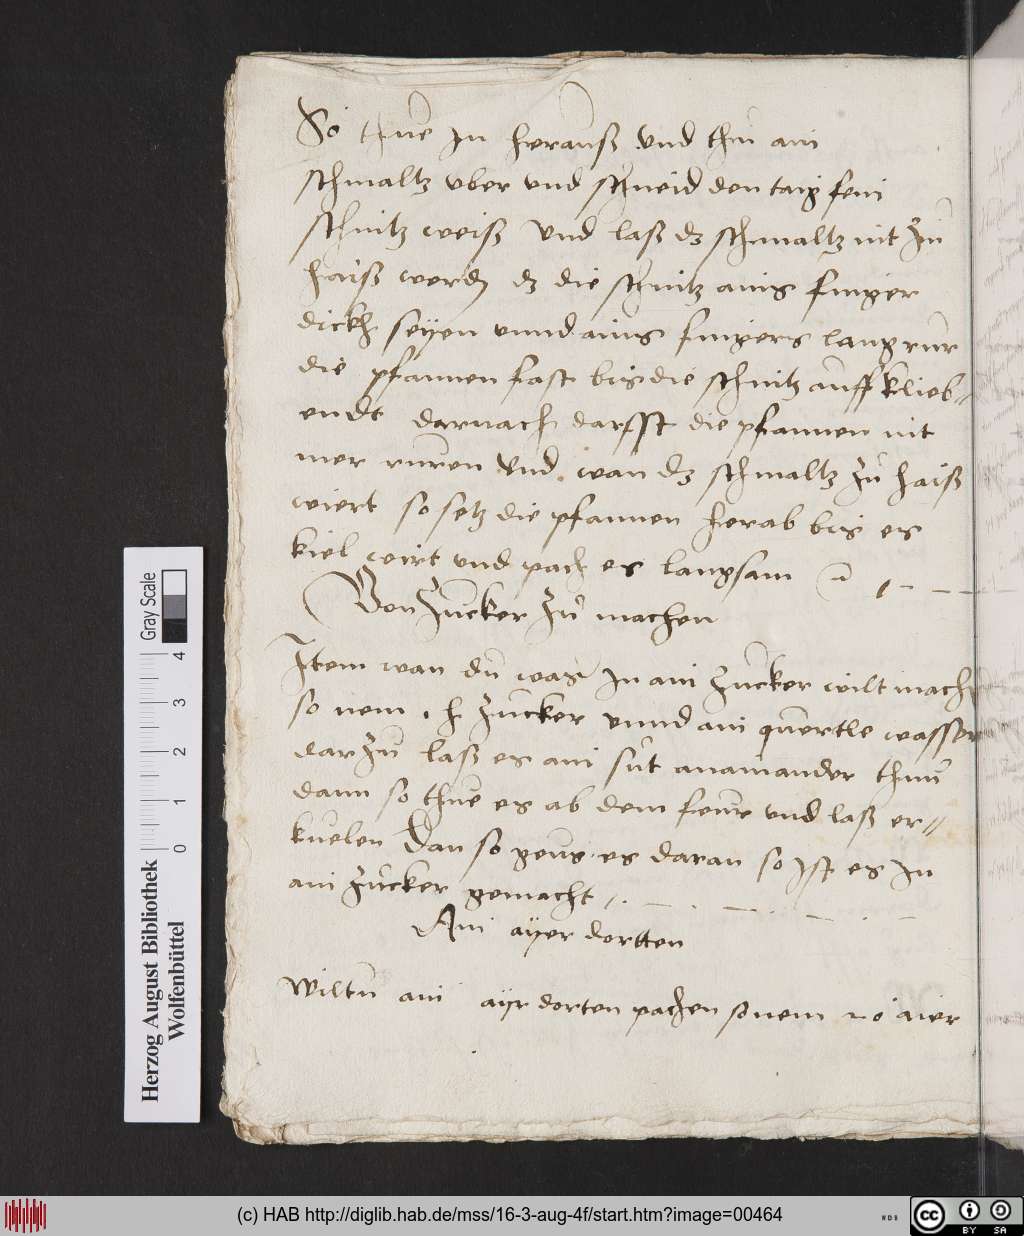 So thue in herauß vnd thu ain
schmaltz vber vnd schneid den taig fein
schnitz weiß vnd laß dz schmaltz nit zu
haiß werden dz die schnitz ains finger
dickh seyen vnnd ains fingers lang rur
die pfannen fast bis die schnitz auff klieb//
endt darnach darffst die pfannen nit
mer ruren vnd wan dz schmaltz zu haiß
wiert so setz die pfannen herab bis es
kiel wirt vnd pach es langsam
Von Zucker zu machen
Item wan du was in ain zucker wilt mach
so nem zucker vnnd ain quertle wasser
darzu laß es ain sut anainander thun
dann so thue es ab dem feur vnd laß er//
kuelen Dan so geus es daran so ist es in
ain zucker gemacht
Ain ayer dortten
Wiltu ain ayr dorten pachen so nem aier
Herzog August Bibliothek
Wolfenbüttel
0 1 2 3 4
Gray Scale
(c) HAB http://diglib.hab.de/mss/16-3-aug-4f/start.htm?image=00464
WDB
cc BY SA